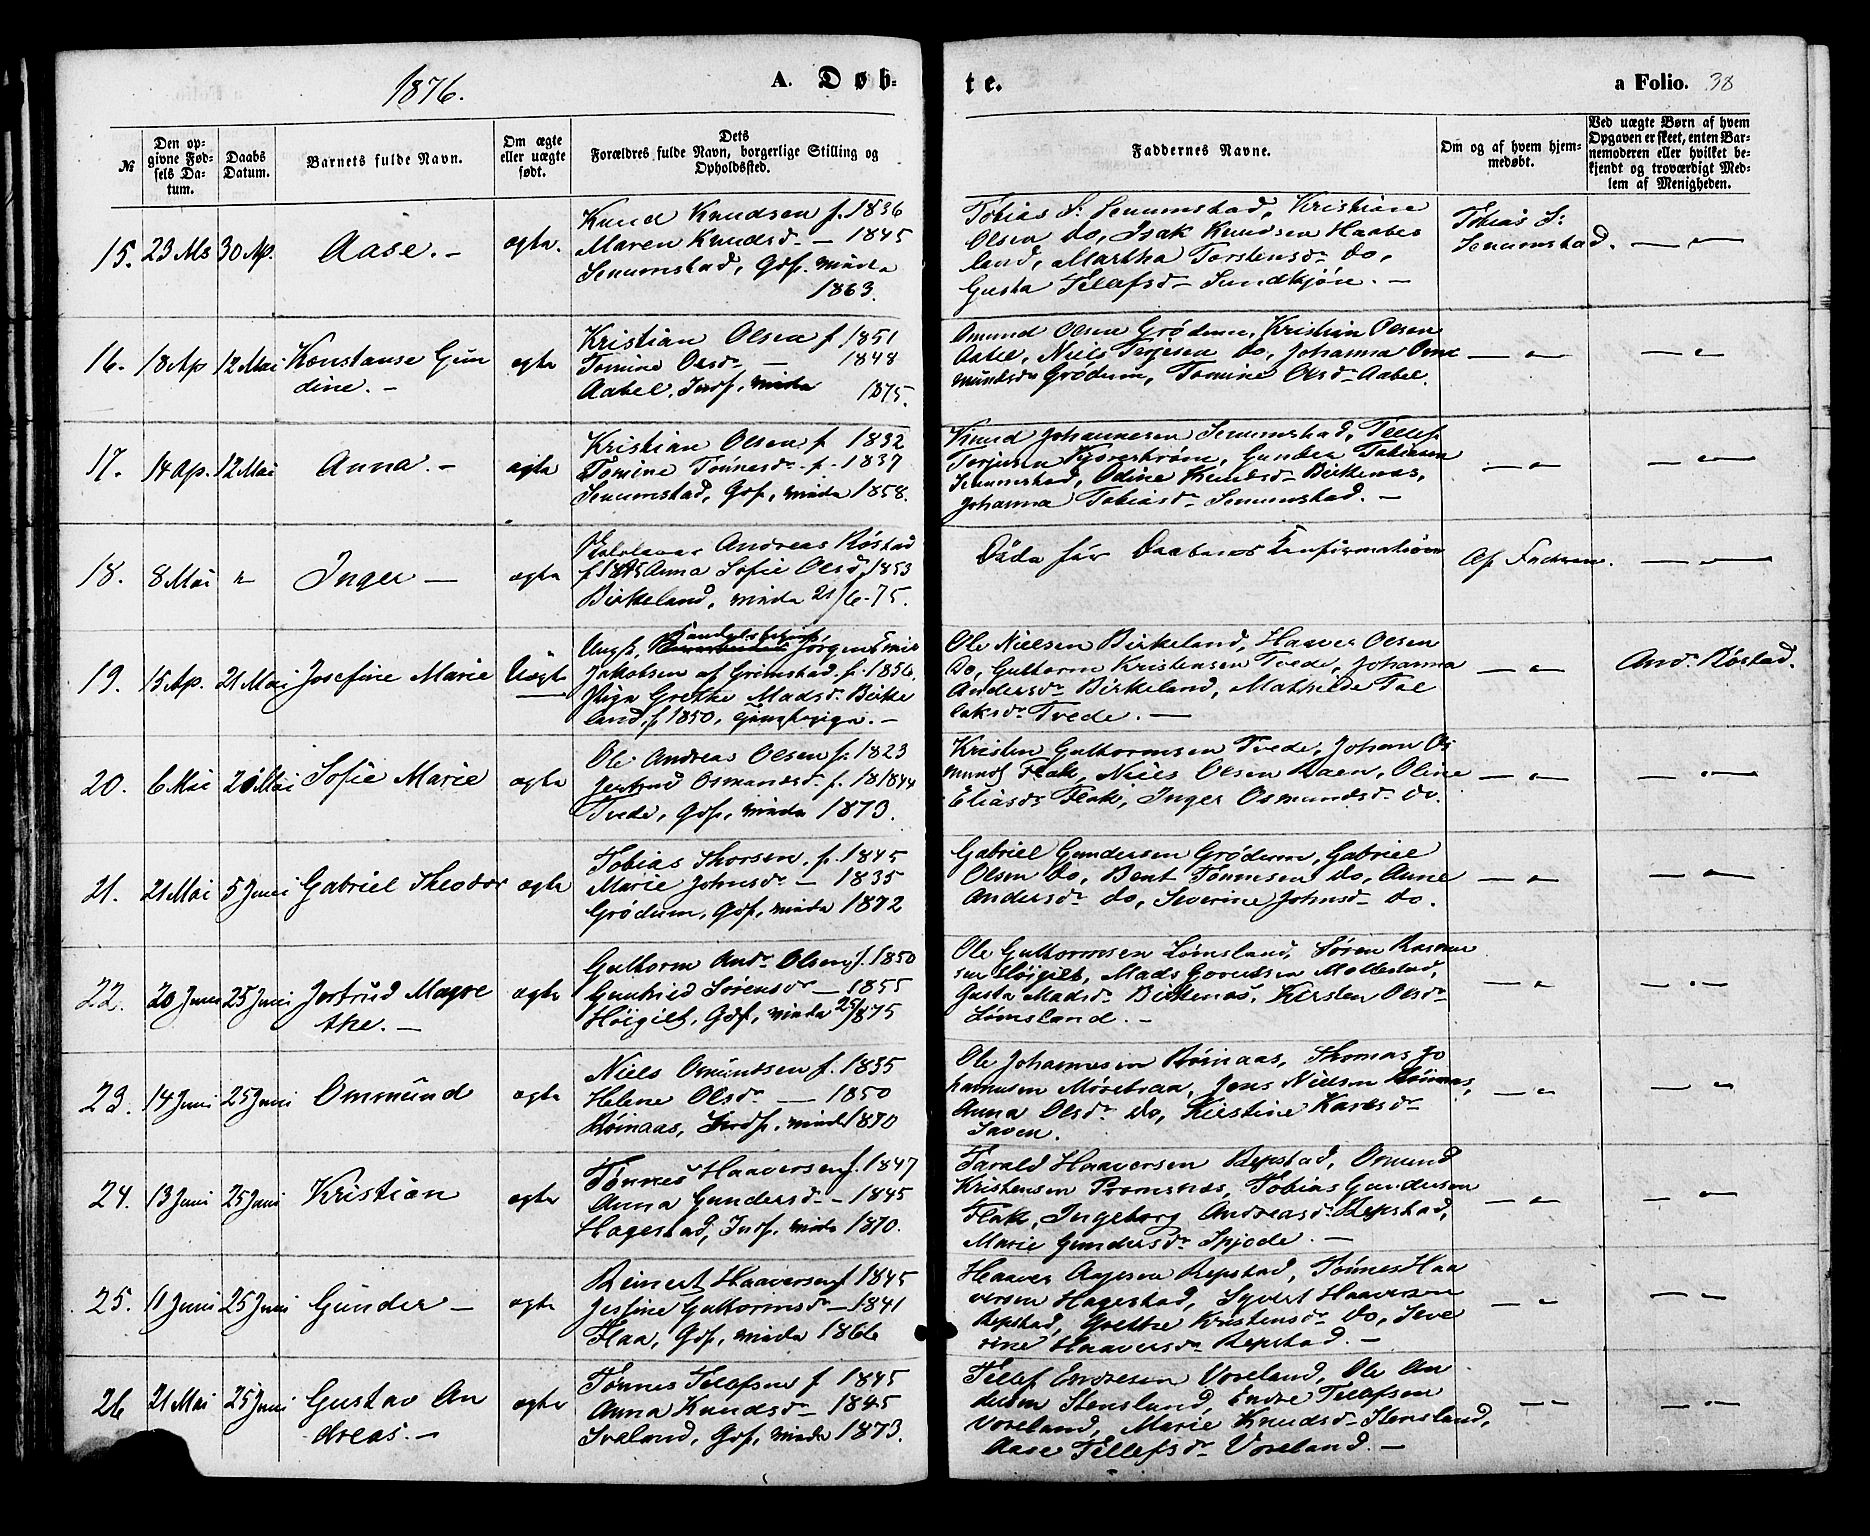 1876.
A. Døb-
te.
a Folio. 38
№
Den op-
givne Fød-
sels Da-
tum.
Daabs
Datum.
Barnets fulde Navn.
Om ægte
eller uægte
født.
Dets
Forældres fulde Navn, borgerlige Stilling og
Opholdssted.
Faddernes Navne.
Om og af hvem hjem-
medøbt.
Ved uægte Børn af hvem
Opgaven er skeet, enten Bar-
nemoderen eller hvilket be-
kjendt og troværdigt Med-
lem af Menigheden.
15. 23 Ms 30 Ap. Aase. — ægte.
Knud Knudsen f. 1836
Maren Knudsd. — 1845
Senumstad, Gdf. viede
1863.
Tobias S: Senumstad, Kristian
Olsen do, Isak Knudsen Haabes
land, Martha Torstensd. do,
Gusta Tellefsd. Sundtjøn. —
Tobias S:
Senumstad. — —
16. 18 Ap 12 Mai Konstanse Gun
dine. — ægte
Kristian Olsen f. 1851
Tomine Olsd. — 1848
Aabel, Indf, viede
1875.
Omund Olsen Grødum, Kristian Olsen
Aabel, Niels Terjesen do, Johanna Om
mundsd. Grødum, Tomine Olsd. Aabel.
— „ — — „ —
17. 14 Ap. 12 Mai Anna. — ægte
Kristian Olsen f. 1832
Tomine Tønnesd. f. 1837
Senumstad, Gdf, viede 1858.
Knud Johannesen Senumstad, Tellef
Terjusen Gunder Tobiasen
Senumstad, Odine Knudsd. Birkenes,
Johanna Tobiasd. Senumstad. —
— „ — — „ —
18. 8 Mai „ Inger — ægte
Andreas Røstad
f 1845 Anna Sofie Olsd. 1853
Birkeland, viede 21/6-75.
Døde før Daabens Konfirmation
Af Faderen. — —
19. 15 Ap. 21 Mai Josefine Marie Uægte
Ungk, Jørgen
Jakobsen af Grimstad f. 1856.
Pige Grethe Madsd. Birke
land, f. 1850, —
Ole Nielsen Birkeland, Haaver Olsen
do, Guttorm Kristensen Tvede, Johanna
Andersd. Birkeland, Mathilde Tal
laksd. Tvede. —
— „ — And. Røstad.
20. 6 Mai Mai Sofie Marie ægte
Ole Andreas Olsen f. 1823
Jertrud Osmundsd. f. 1844
Tvede, Gdf, viede 1873.
Kristen Guttormsen Tvede, Johan Os
munds. Flak, Niels Olsen Raen, Oline
Eliasd. Flak, Inger Osmundsd. do.
— „ — — „ —
21. 21 Mai 5 Juni Gabriel Theodor ægte
Tobias Thorsen, f. 1845
Marie Johnsd. — 1835
Grødum, Gdf, viede 1872
Gabriel Gundersen Grødum, Gabriel
Olsen do, Bent Tønnesen do, Anne
Andersd. do, Severine Johnsd. do.
— „ — — „ —
22. 20 Juni 25 Juni Jertrud Magre
the. — ægte
Guttorm And. Olsen f. 1850
Guntried Sørensd. — 1855
Høigilt, Gdf, viede 25/ 1875
Ole Guttormsen Lømsland, Søren Rasmus
sen Høigilt, Mads Gorudsen Mollestad,
Gusta Madsd. Birkenes, Kirsten Olsd.
Lømsland. —
— „ — — „ —
23. 14 Juni 25 Juni Ommund ægte
Niels Omundsen f. 1835
Helene Olsd. — 1850
Røinaas, Indf, viede 1870
Ole Johannesen Røinaas, Thomas Jo
hannesen Mørebraa, Jens Nielsen Røinaas,
Anna Olsd. do, Kirstine Karlsd.
Saven.
— „ — — „ —
24. 13 Juni 25 Juni Kristian ægte
Tønnes Haaversen f. 1847
Anna Gundersd. — 1845
Hagestad, Indf. viede 1870.
Tarald Haaversen Repstad, Omund
Kristensen Tobias Gundersen
Flak, Ingeborg Andreasd. Repstad,
Marie Gundersd. —
— „ — — „ —
25. 11 Juni 25 Juni Gunder — ægte
Reinert Haaversen f. 1845
Jesfine Guttormsd. — 1841
Flaa, Gdf, viede 1866
Haaver Aagesen Repstad, Tønnes Haa
versen Hagestad, Syvert Haaversen
Repstad, Grethe Kristensd. do, Seve
rine Haaversd. Repstad. —
— „ — — „ —
26 21 Mai 25 Juni Gustav An
dreas. — ægte
Tønnes Tellefsen f 1845
Anna Knudsd. — 1845
Svaland, Gdf, viede 1873.
Tellef Endresen Voreland, Ole An
dersen Stensland, Endre Tellefsen
Voreland, Marie Knudsd. Stensland,
Aase Tellefsd. Voreland. —
— „ — — „ —